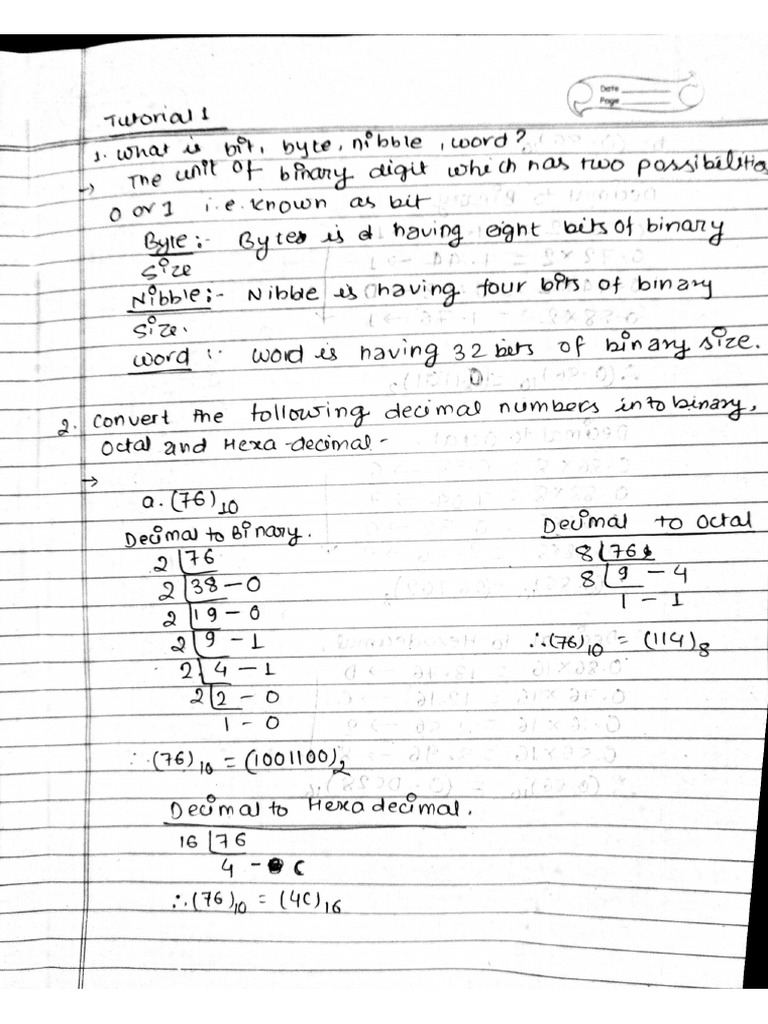 Date
Page
Tutorial 1
1. What is bit, byte, nibble, word?
→ The unit of binary digit which has two possibilitie
0 or 1 i.e. known as bit
Byte:- Bytes is having eight bits of binary
size
Nibble:- Nibble is having four bits of binary
size.
word :- word is having 32 bits of binary size.
2. Convert the following decimal numbers into binary,
Octal and Hexa-decimal-
→
a. (76)10
Decimal to Binary.
2 | 76
2 | 38 - 0
2 | 19 - 0
2 | 9 - 1
2 | 4 - 1
2 | 2 - 0
1 - 0
∴ (76)10 = (1001100)2
Decimal to Octal
8 | 76
8 | 9 - 4
1 - 1
∴ (76)10 = (114)8
Decimal to Hexa decimal.
16 | 76
4 - C
∴ (76)10 = (4C)16